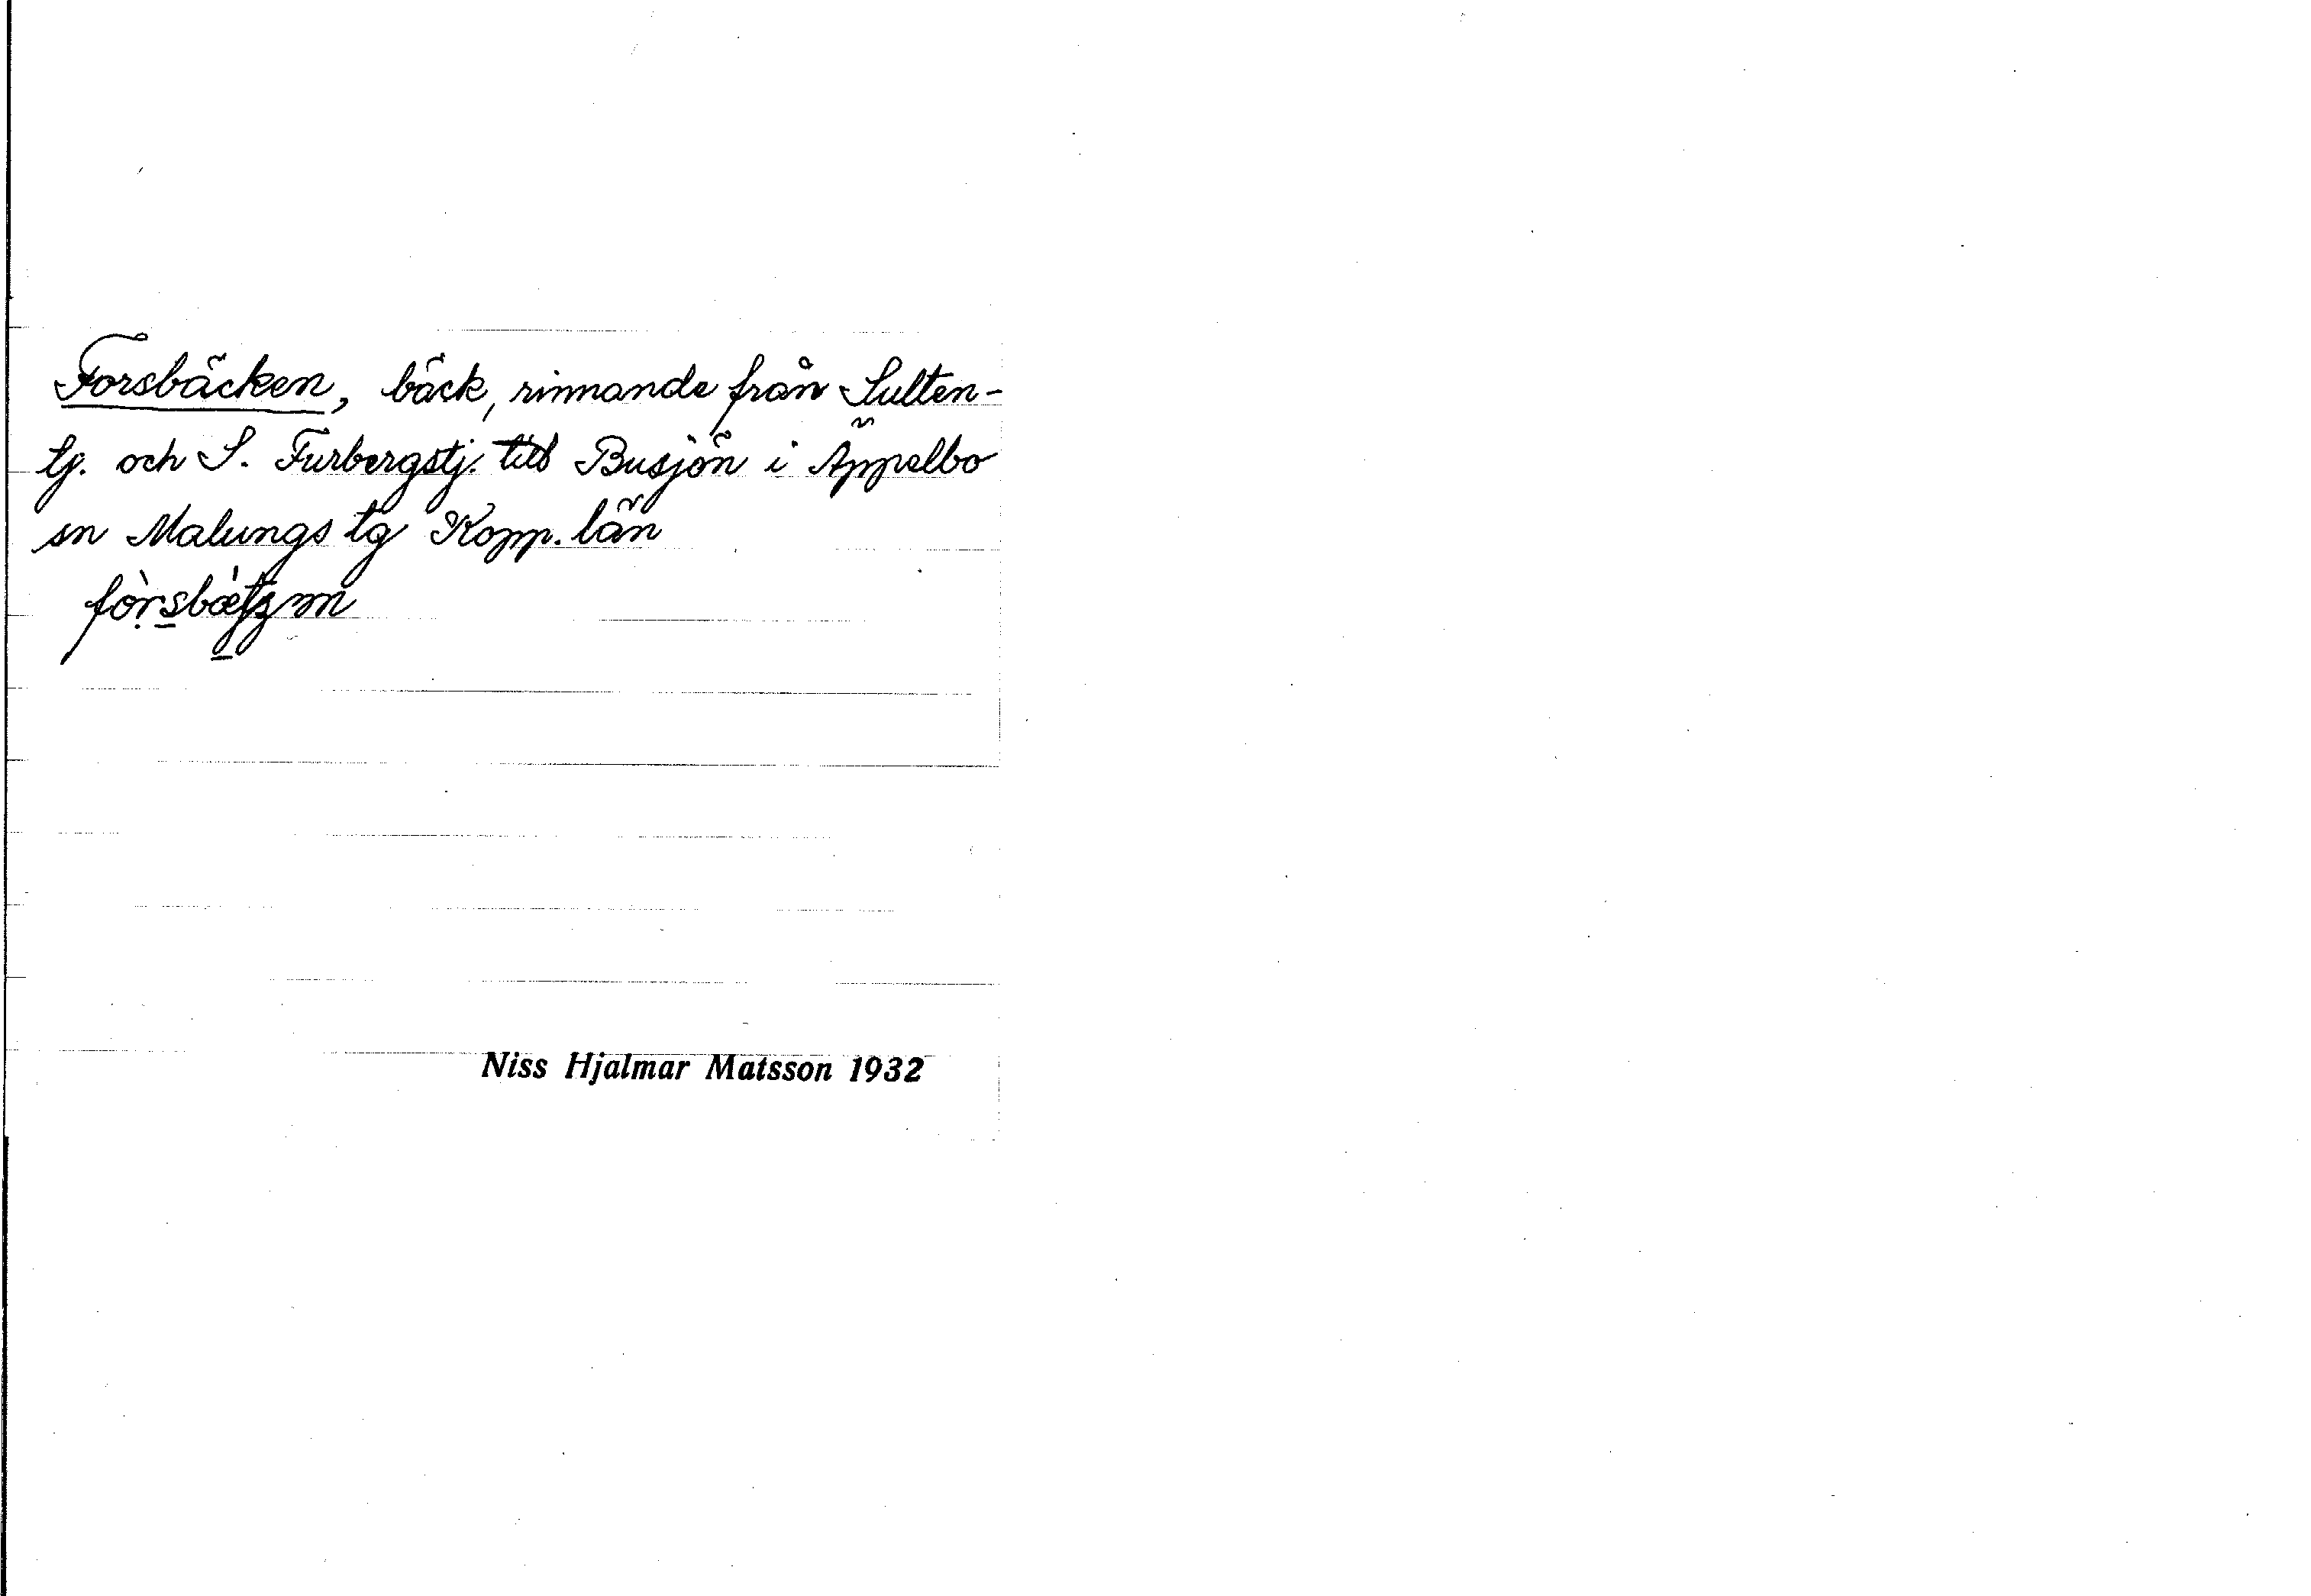 Forsbäcken, bäck, rinnande från Sulten-
tj. och S. Furbergstj. till Busjön i Äppelbo
sn Malungs tg Kopp. län
Niss Hjalmar Matsson 1932